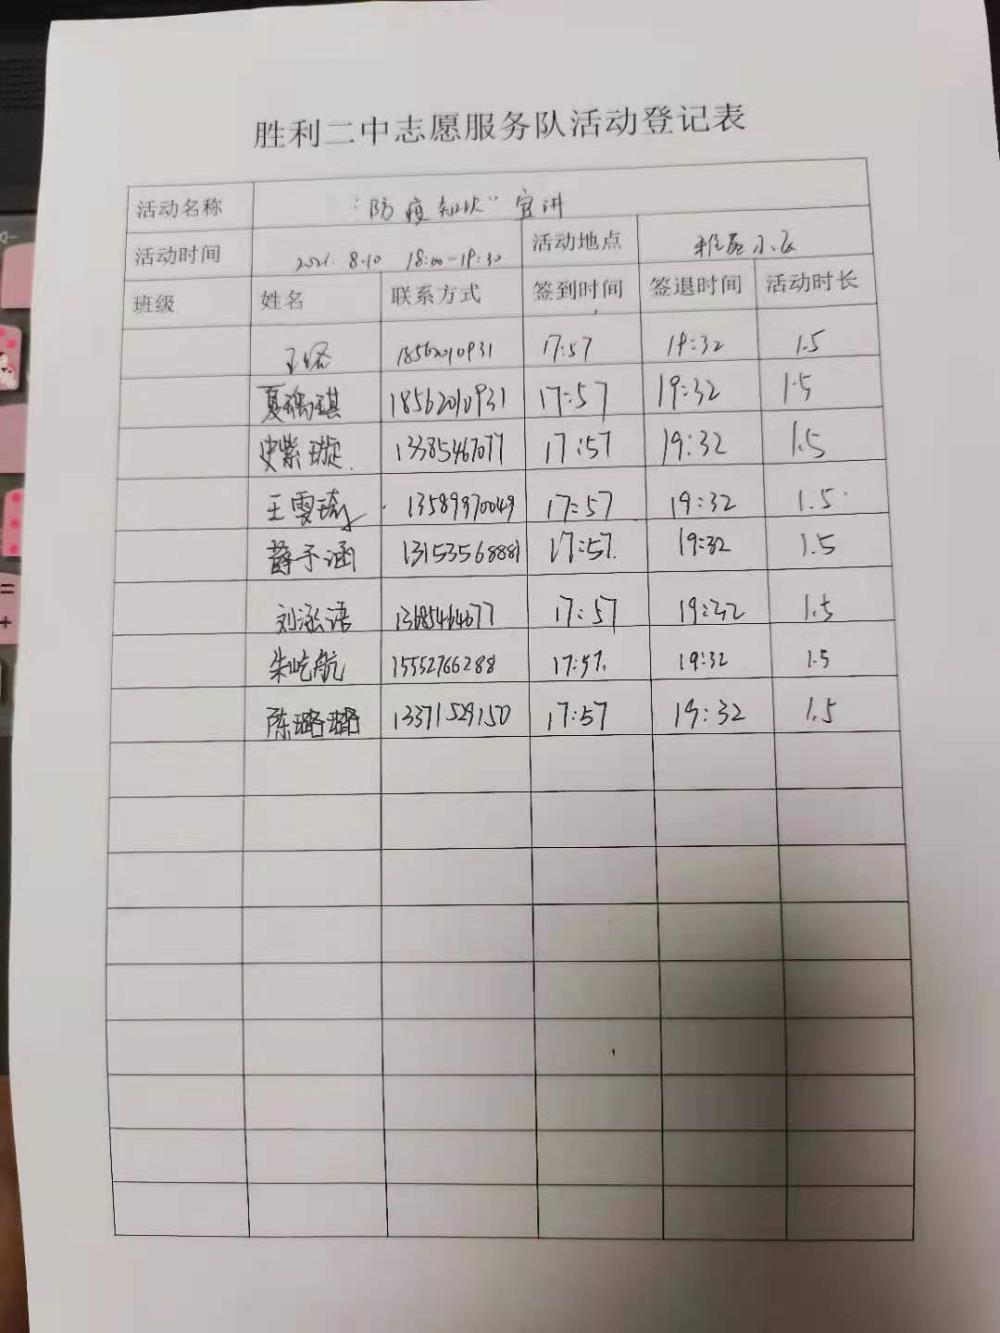 胜利二中志愿服务队活动登记表
活动名称 "防疫知识"宣讲
活动时间 2021. 8.10 18:00-19:30 活动地点 雅苑小区
班级 姓名 联系方式 签到时间 签退时间 活动时长
18562010931 17:57 19:32 1.5
夏瑀琪 18562010931 17:57 19:32 1.5
史紫璇 13385467077 17:57 19:32 1.5
王雯琦 13589970049 17:57 19:32 1.5
薛予涵 13153568881 17:57 19:32 1.5
刘泓语 13685464677 17:57 19:32 1.5
朱屹航 15552766288 17:57 19:32 1.5
陈璐璐 13371529150 17:57 19:32 1.5